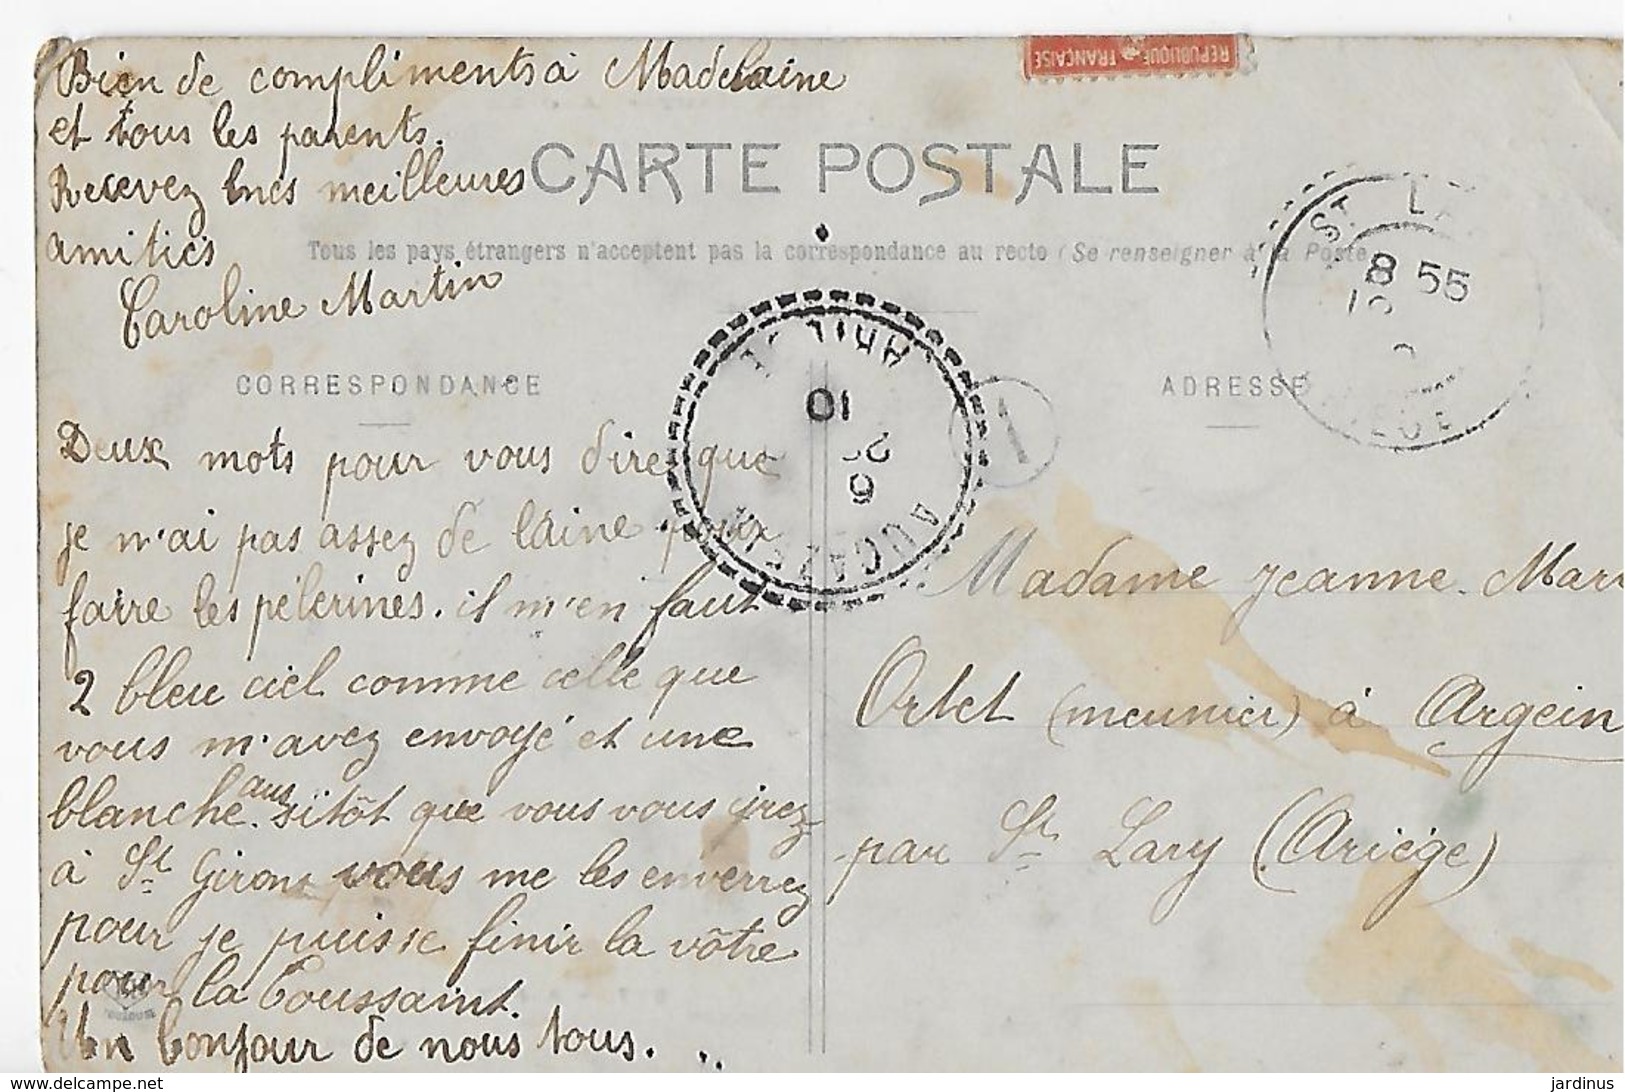 Bien de compliments à Madelaine
et tous les parents.
Recevez mes meilleures
amitiés
Caroline Martin
REPUBLIQUE FRANÇAISE
CARTE POSTALE
Tous les pays étrangers n'acceptent pas la correspondance au recto (Se renseigner à la Poste
CORRESPONDANCE
ADRESSE
8 55
10
AUCAZEIN
1
Deux mots pour vous dire que
je n'ai pas assez de laine pour
faire les pèlerines. il m'en faut
2 bleu ciel comme celle que
vous m'avez envoyé et une
blanche aussitôt que vous vous irez
à St Girons vous me les enverrez
pour je puisse finir la vôtre
pour la Toussaint.
Un bonjour de nous tous.
Madame Jeanne Mar
Ortet (meunier) à Argein
par St Lary (Ariège)
www.delcampe.net
jardinus